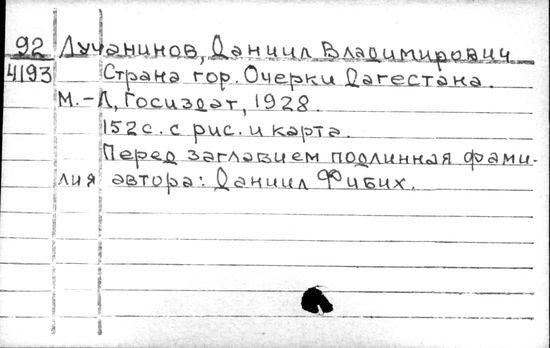 92 Лучанинов, Даниил Владимирович
4193 Страна гор. Очерки Дагестана.
М.-Л, Госиздат, 1928.
152с. с рис. и карта.
Перед заглавием подлинная фами-
лия автора: Даниил Фибих.